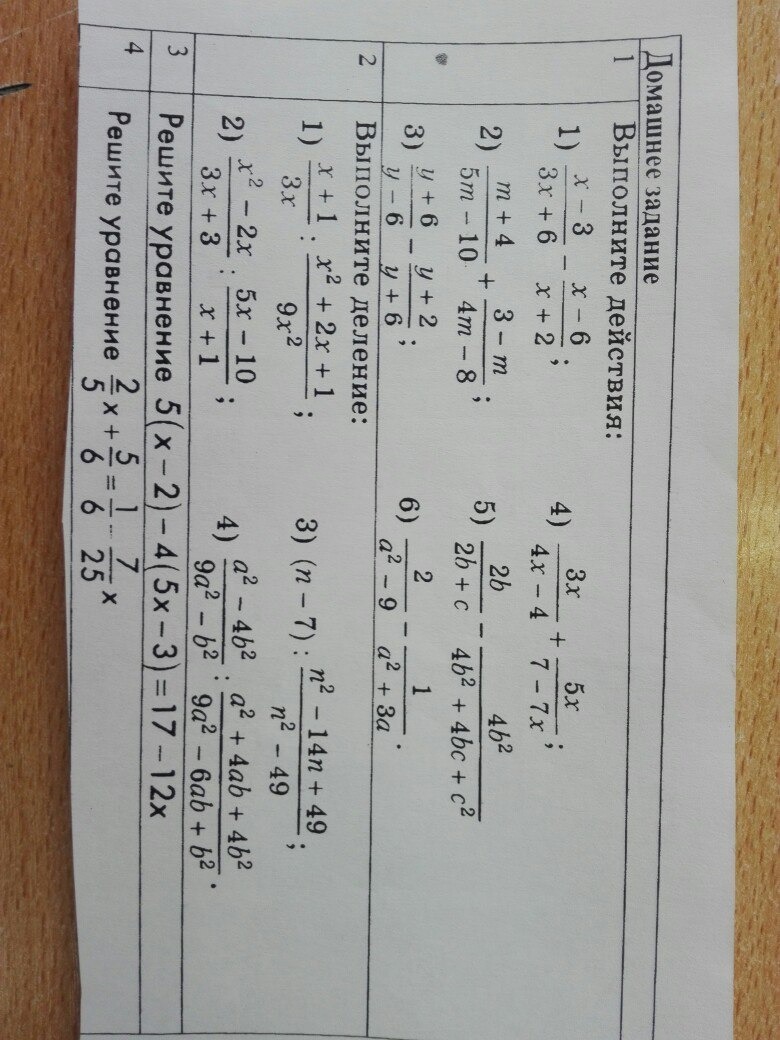 Домашнее задание
1 Выполните действия:
1) (x − 3)/(3x + 6) − (x − 6)/(x + 2); 4) 3x/(4x − 4) + 5x/(7 − 7x);
2) (m + 4)/(5m − 10) + (3 − m)/(4m − 8); 5) 2b/(2b + c) − 4b²/(4b² + 4bc + c²)
3) (y + 6)/(y − 6) − (y + 2)/(y + 6); 6) 2/(a² − 9) − 1/(a² + 3a).
2 Выполните деление:
1) (x + 1)/3x : (x² + 2x + 1)/9x²; 3) (n − 7) : (n² − 14n + 49)/(n² − 49);
2) (x² − 2x)/(3x + 3) : (5x − 10)/(x + 1); 4) (a² − 4b²)/(9a² − b²) : (a² + 4ab + 4b²)/(9a² − 6ab + b²).
3 Решите уравнение 5(x − 2) − 4(5x − 3) = 17 − 12x
4 Решите уравнение 2/5 x + 5/6 = 1/6 − 7/25 x